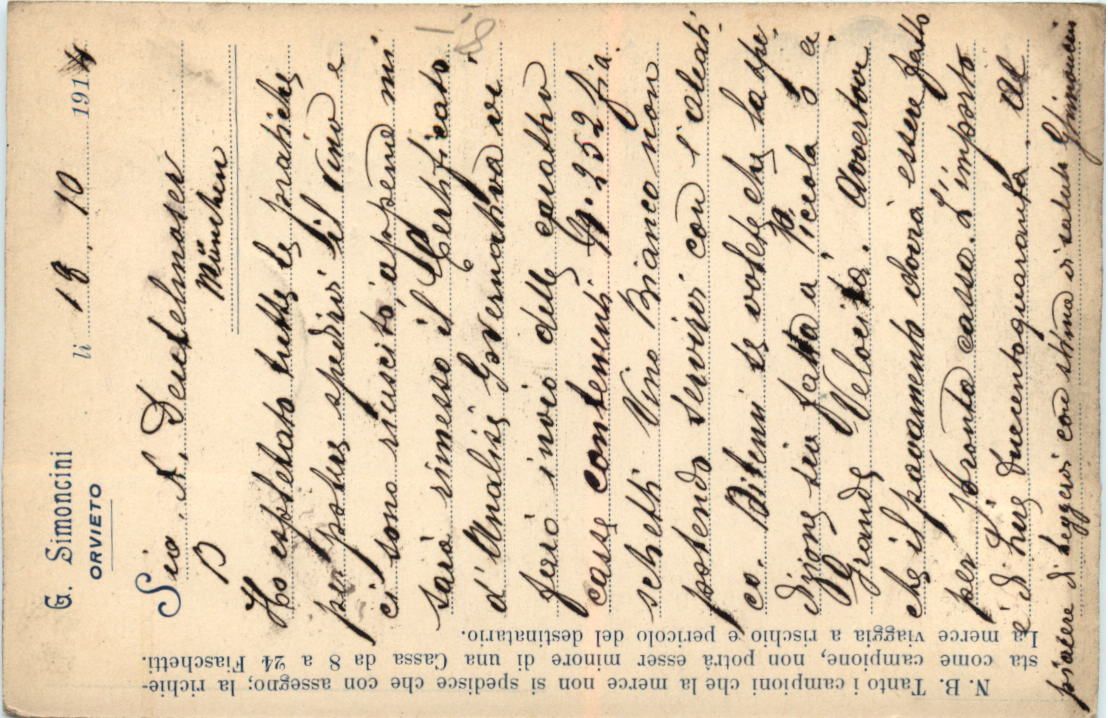 G. Simoncini
ORVIETO
li 18. 10 191
Sig. A. Deutelmoser
München
Ho espletato tutte le pratiche
per potervi spedire il vino e
ci sono riuscito; appena mi
sarà rimesso il Certificato
d'Analisi Governativa vi
farò invio delle quattro
casse contenenti N. 252 fia-
schetti Vino Bianco non
potendo servirvi con l'aleati-
co. Ditemi se volete che la spe-
dizione sia fatta a Piccola o a
Grande Velocità. Avvertove
che il pagamento dovrà essere fatto
per pronta cassa. L'importo
è di Lire Duecentoquaranta. Al
piacere di leggervi con stima vi saluto GSimoncini
N. B. Tanto i campioni che la merce non si spedisce che con assegno; la richie-
sta come campione, non potrà esser minore di una Cassa da 8 a 24 Fiaschetti.
La merce viaggia a rischio e pericolo del destinatario.